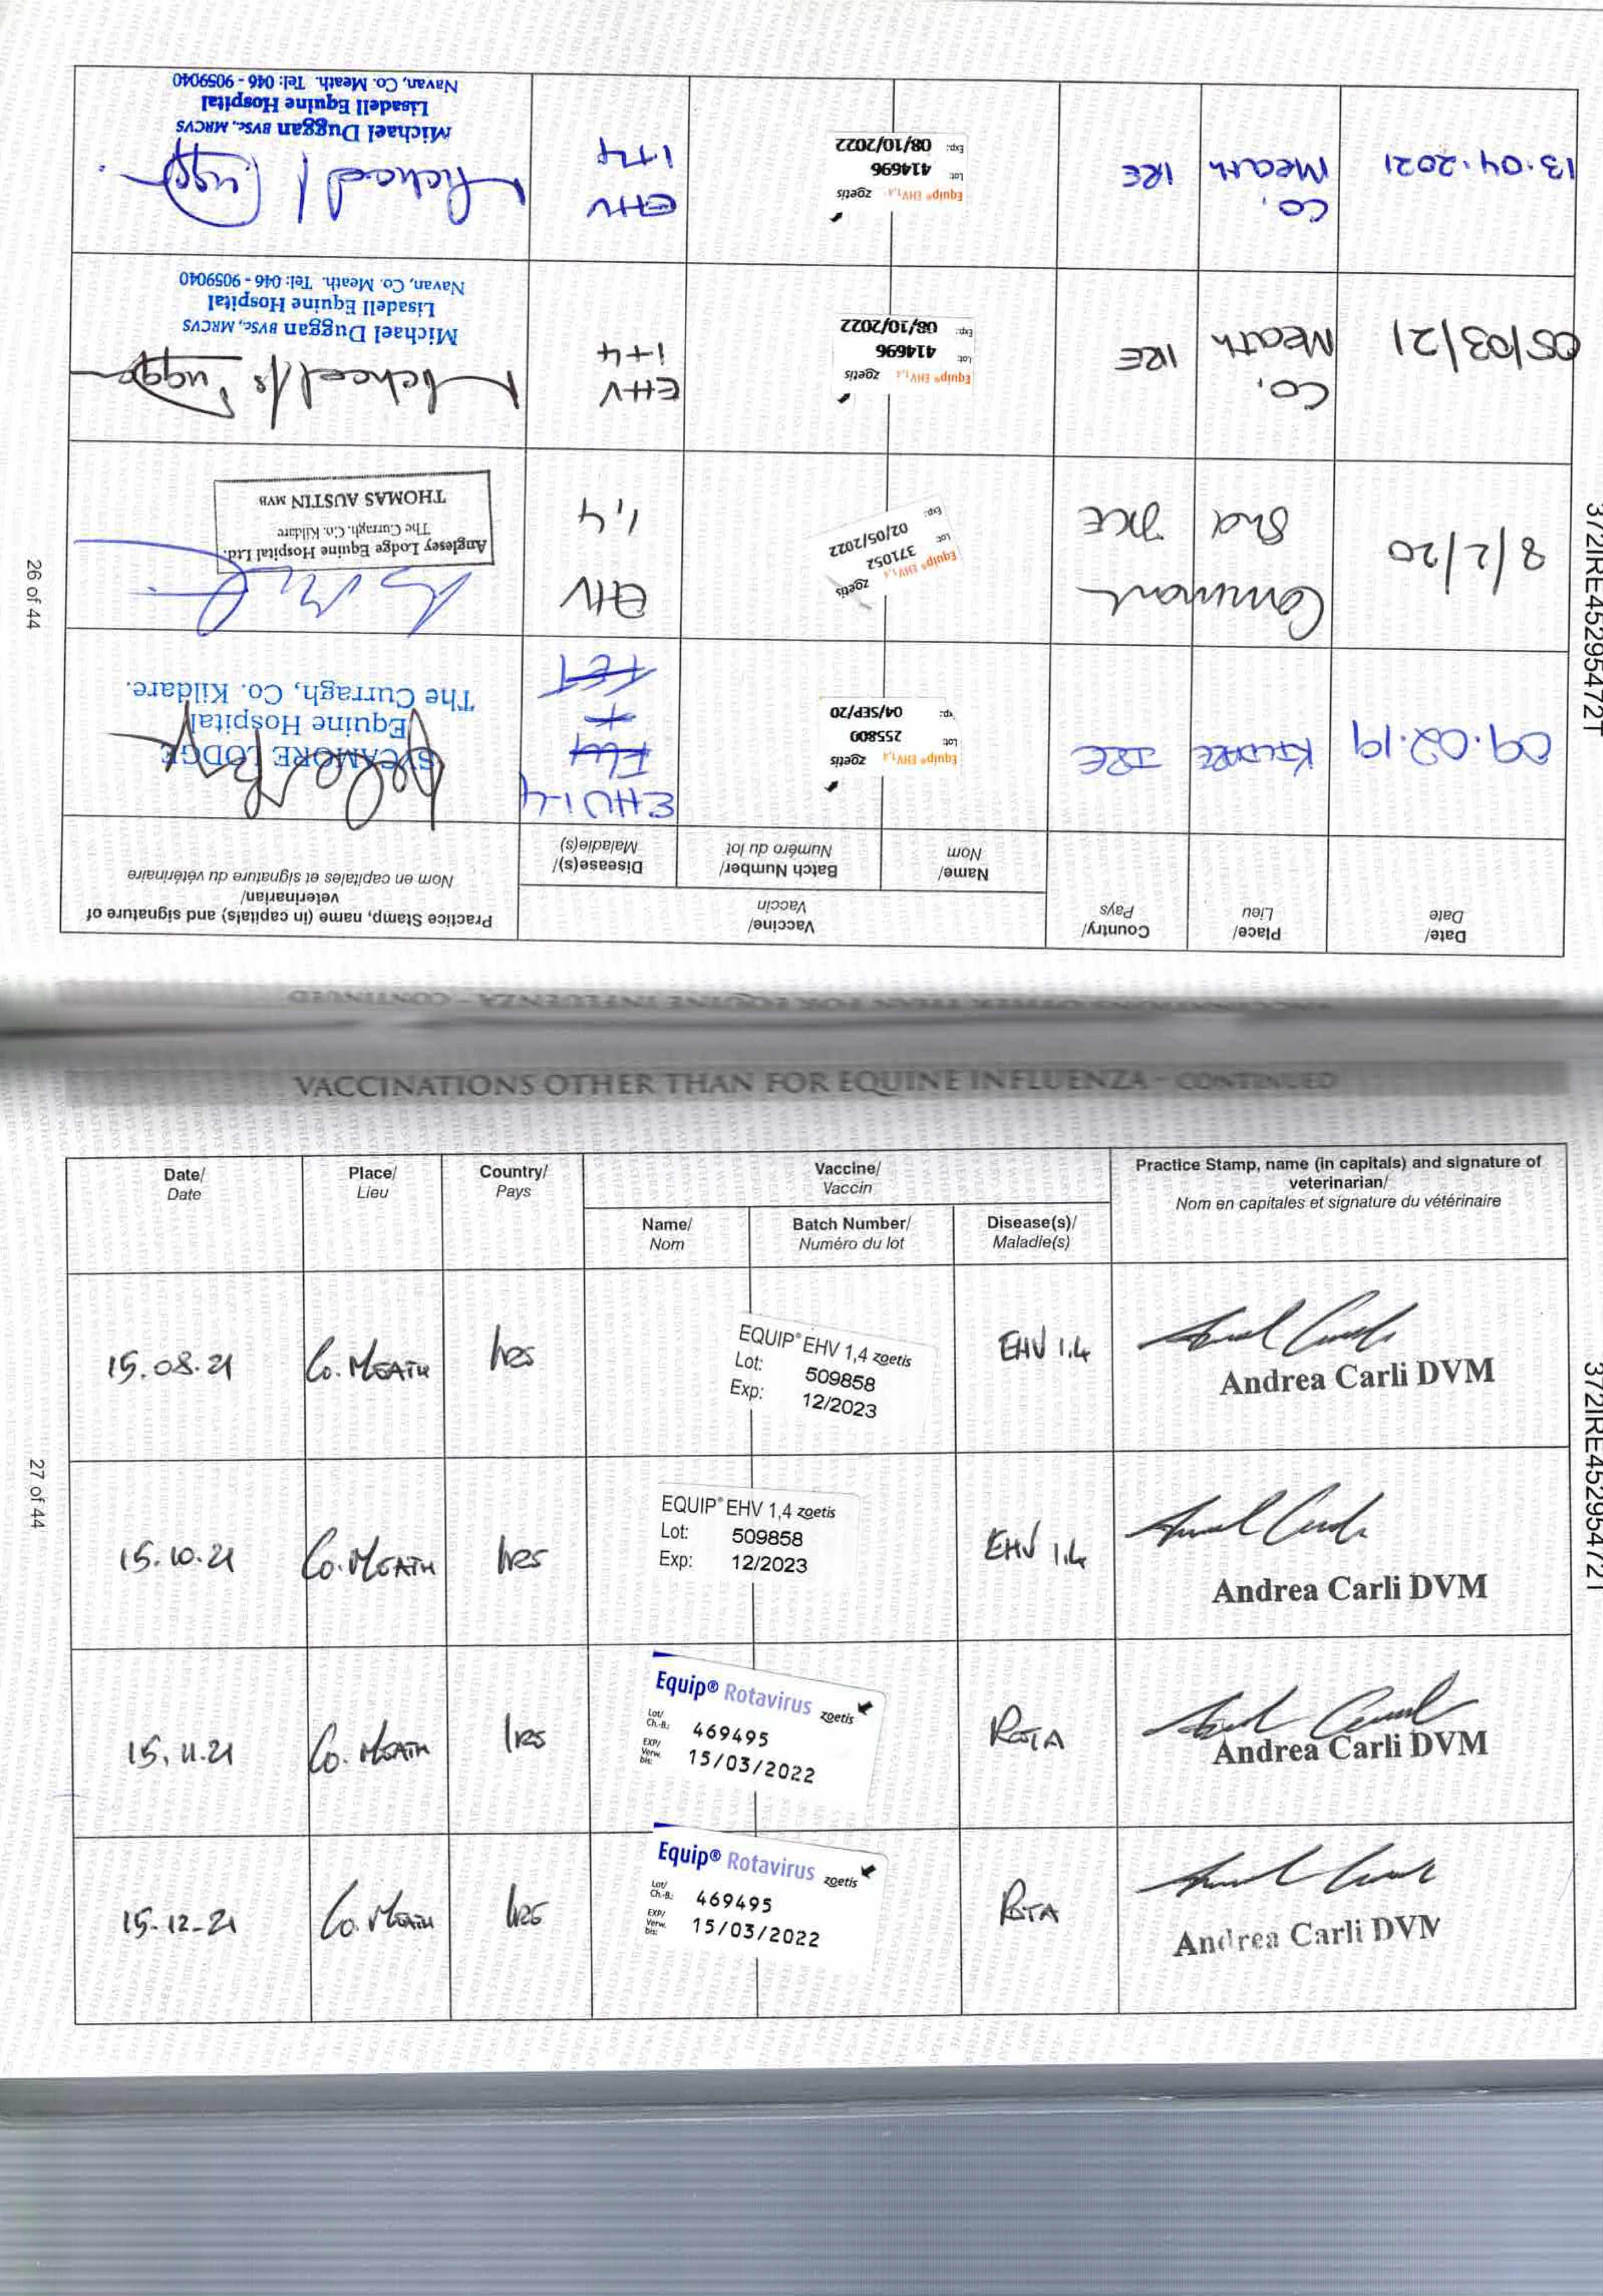 VACCINATIONS OTHER THAN FOR EQUINE INFLUENZA - CONTINUED
Date/
Date
Place/
Lieu
Country/
Pays
Vaccine/
Vaccin
Name/
Nom
Batch Number/
Numéro du lot
Disease(s)/
Maladie(s)
Practice Stamp, name (in capitals) and signature of
veterinarian/
Nom en capitales et signature du vétérinaire
09.02.19
KILDARE
IRE
Equip® EHV1,4 zoetis
Lot: 255809
Exp: 04/SEP/20
EHV1-4
FLU
+
TET
SYCAMORE LODGE
Equine Hospital
The Curragh, Co. Kildare.
8/2/20
Commons
Stud
IRE
Equip® EHV1,4 zoetis
Lot: 371052
Exp: 02/05/2022
EHV
1,4
Anglesey Lodge Equine Hospital Ltd.
The Curragh, Co. Kildare
THOMAS AUSTIN MVB
05/03/21
CO.
Meath
IRE
Equip® EHV1,4 zoetis
Lot: 414696
Exp: 08/10/2022
EHV
1+4
Michael Duggan
Michael Duggan BVSc, MRCVS
Lisadell Equine Hospital
Navan, Co. Meath. Tel: 046 - 9059040
13.04.2021
CO.
Meath
IRE
Equip® EHV1,4 zoetis
Lot: 414696
Exp: 08/10/2022
EHV
1+4
Michael Duggan
Michael Duggan BVSc, MRCVS
Lisadell Equine Hospital
Navan, Co. Meath. Tel: 046 - 9059040
26 of 44
372IRE45295472T
VACCINATIONS OTHER THAN FOR EQUINE INFLUENZA - CONTINUED
Date/
Date
Place/
Lieu
Country/
Pays
Vaccine/
Vaccin
Name/
Nom
Batch Number/
Numéro du lot
Disease(s)/
Maladie(s)
Practice Stamp, name (in capitals) and signature of
veterinarian/
Nom en capitales et signature du vétérinaire
15.08.21
Co. MEATH
IRE
EQUIP® EHV 1,4 zoetis
Lot: 509858
Exp: 12/2023
EHV 1.4
Andrea Carli DVM
15.10.21
Co. MEATH
IRE
EQUIP® EHV 1,4 zoetis
Lot: 509858
Exp: 12/2023
EHV 1.4
Andrea Carli DVM
15.11.21
Co. MEATH
IRE
Equip® Rotavirus zoetis
Lot/
Ch.-B.: 469495
EXP/
Verw.
bis: 15/03/2022
ROTA
Andrea Carli DVM
15-12-21
Co. MEATH
IRE
Equip® Rotavirus zoetis
Lot/
Ch.-B.: 469495
EXP/
Verw.
bis: 15/03/2022
ROTA
Andrea Carli DVM
27 of 44
372IRE45295472T